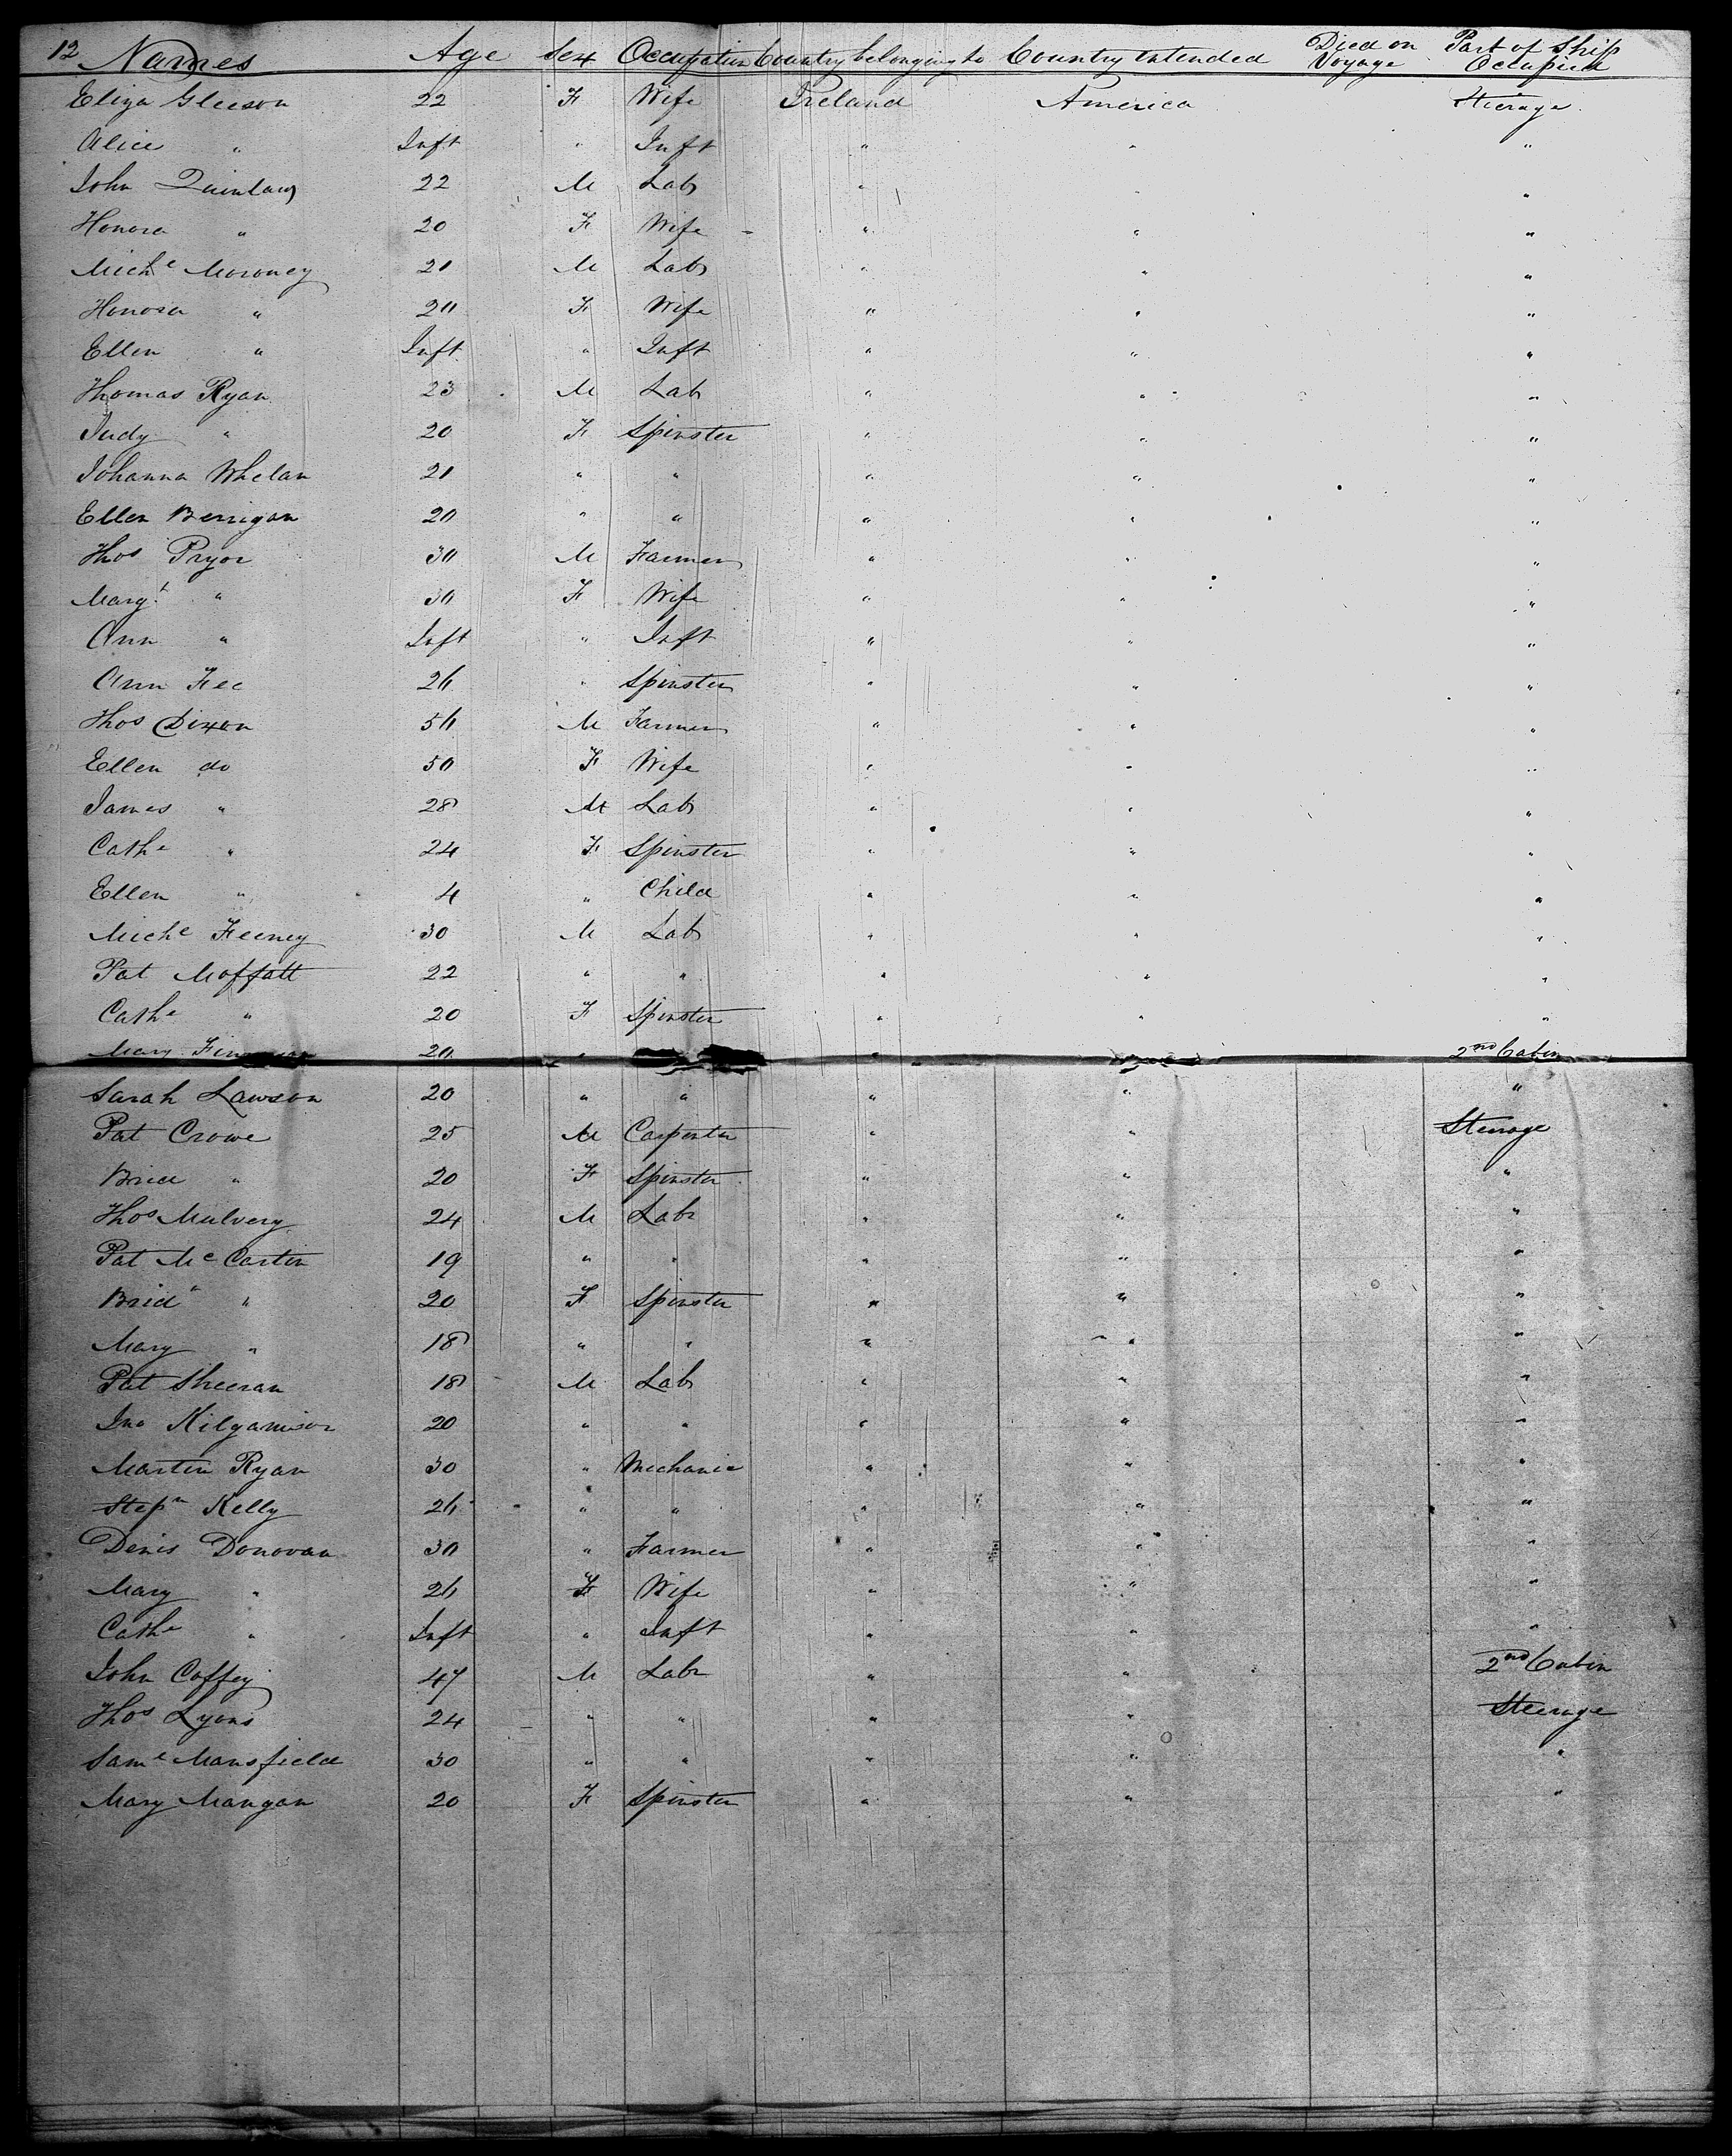 12 Names Age Sex Occupation Country belonging to Country intended Died on Voyage Part of Ship Occupied
Eliza Gleeson 22 F Wife Ireland America Steerage
Alice " Inft " Inft " " "
John Quinlan 22 M Labr " " "
Honora " 20 F Wife " " "
Miche Moroney 21 M Labr " " "
Honora " 20 F Wife " " "
Ellen " Inft " Inft " " "
Thomas Ryan 23 M Lab " " "
Judy " 20 F Spinster " " "
Johanna Whelan 21 " " " " "
Ellen Berrigan 20 " " " " "
Thos Pryor 30 M Farmer " " "
Margt " 30 F Wife " " "
Ann " Inft " Inft " " "
Ann Fee 26 " Spinster " " "
Thos Dixon 56 M Farmer " " "
Ellen do 50 F Wife " " "
James " 28 M Labr " " "
Cathe " 24 F Spinster " " "
Ellen " 4 " Child " " "
Miche Feeney 30 M Labr " " "
Pat Moffatt 22 " " " " "
Cathe " 20 F Spinster " " "
Mary 20 " " " 2nd Cabin
Sarah Lawson 20 " " " " "
Pat Crowe 25 M Carpenter " " Steerage
Brid " 20 F Spinster " " "
Thos Mulvery 24 M Labr " " "
Pat McCartin 19 " " " " "
Brid " 20 F Spinster " " "
Mary " 18 " " " " "
Pat Sheeran 18 M Labr " " "
Jno 20 " " " " "
Martin Ryan 30 " Mechanic " " "
Stepn Kelly 26 " " " " "
Denis Donovan 30 " Farmer " " "
Mary " 26 F Wife " " "
Cathe " Inft " Inft " " "
John Coffey 47 M Labr " " 2nd Cabin
Thos Lyons 24 " " " " Steerage
Same Mansfield 30 " " " " "
Mary Mangan 20 F Spinster " " "